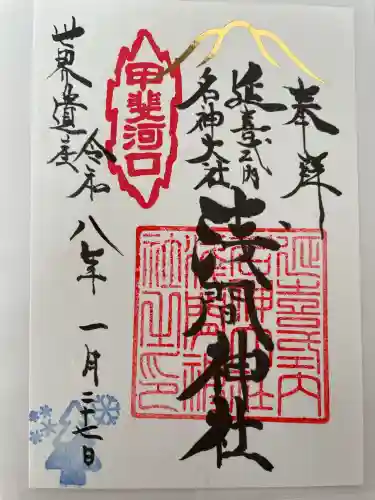 奉拝
延喜式内
名神大社
浅間神社
甲斐河口
延喜式内
名神大社
浅間神
社之印
世界遺産
令和八年一月二十七日